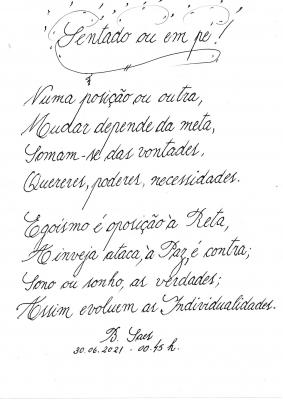 Sentado ou em pé!
Numa posição ou outra,
Mudar depende da meta,
Somam-se das vontades,
Quereres, poderes, necessidades.
Egoísmo é oposição à Reta,
A inveja ataca, à Paz, é contra;
Sono ou sonho, as verdades;
Assim evoluem as Individualidades.
B. Saes
30.06.2021 - 00.45 h.